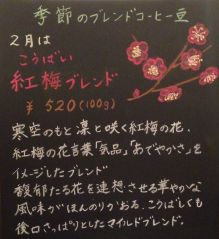 季節のブレンドコーヒー豆
2月は
こうばい
紅梅ブレンド
¥520(100g)
寒空のもと凛と咲く紅梅の花。
紅梅の花言葉「気品」「あでやかさ」を
イメージしたブレンド
馥郁たる花を連想させる華やかな
風味がほんのりかおる、こうばしくも
後口さっぱりとしたマイルドブレンド。